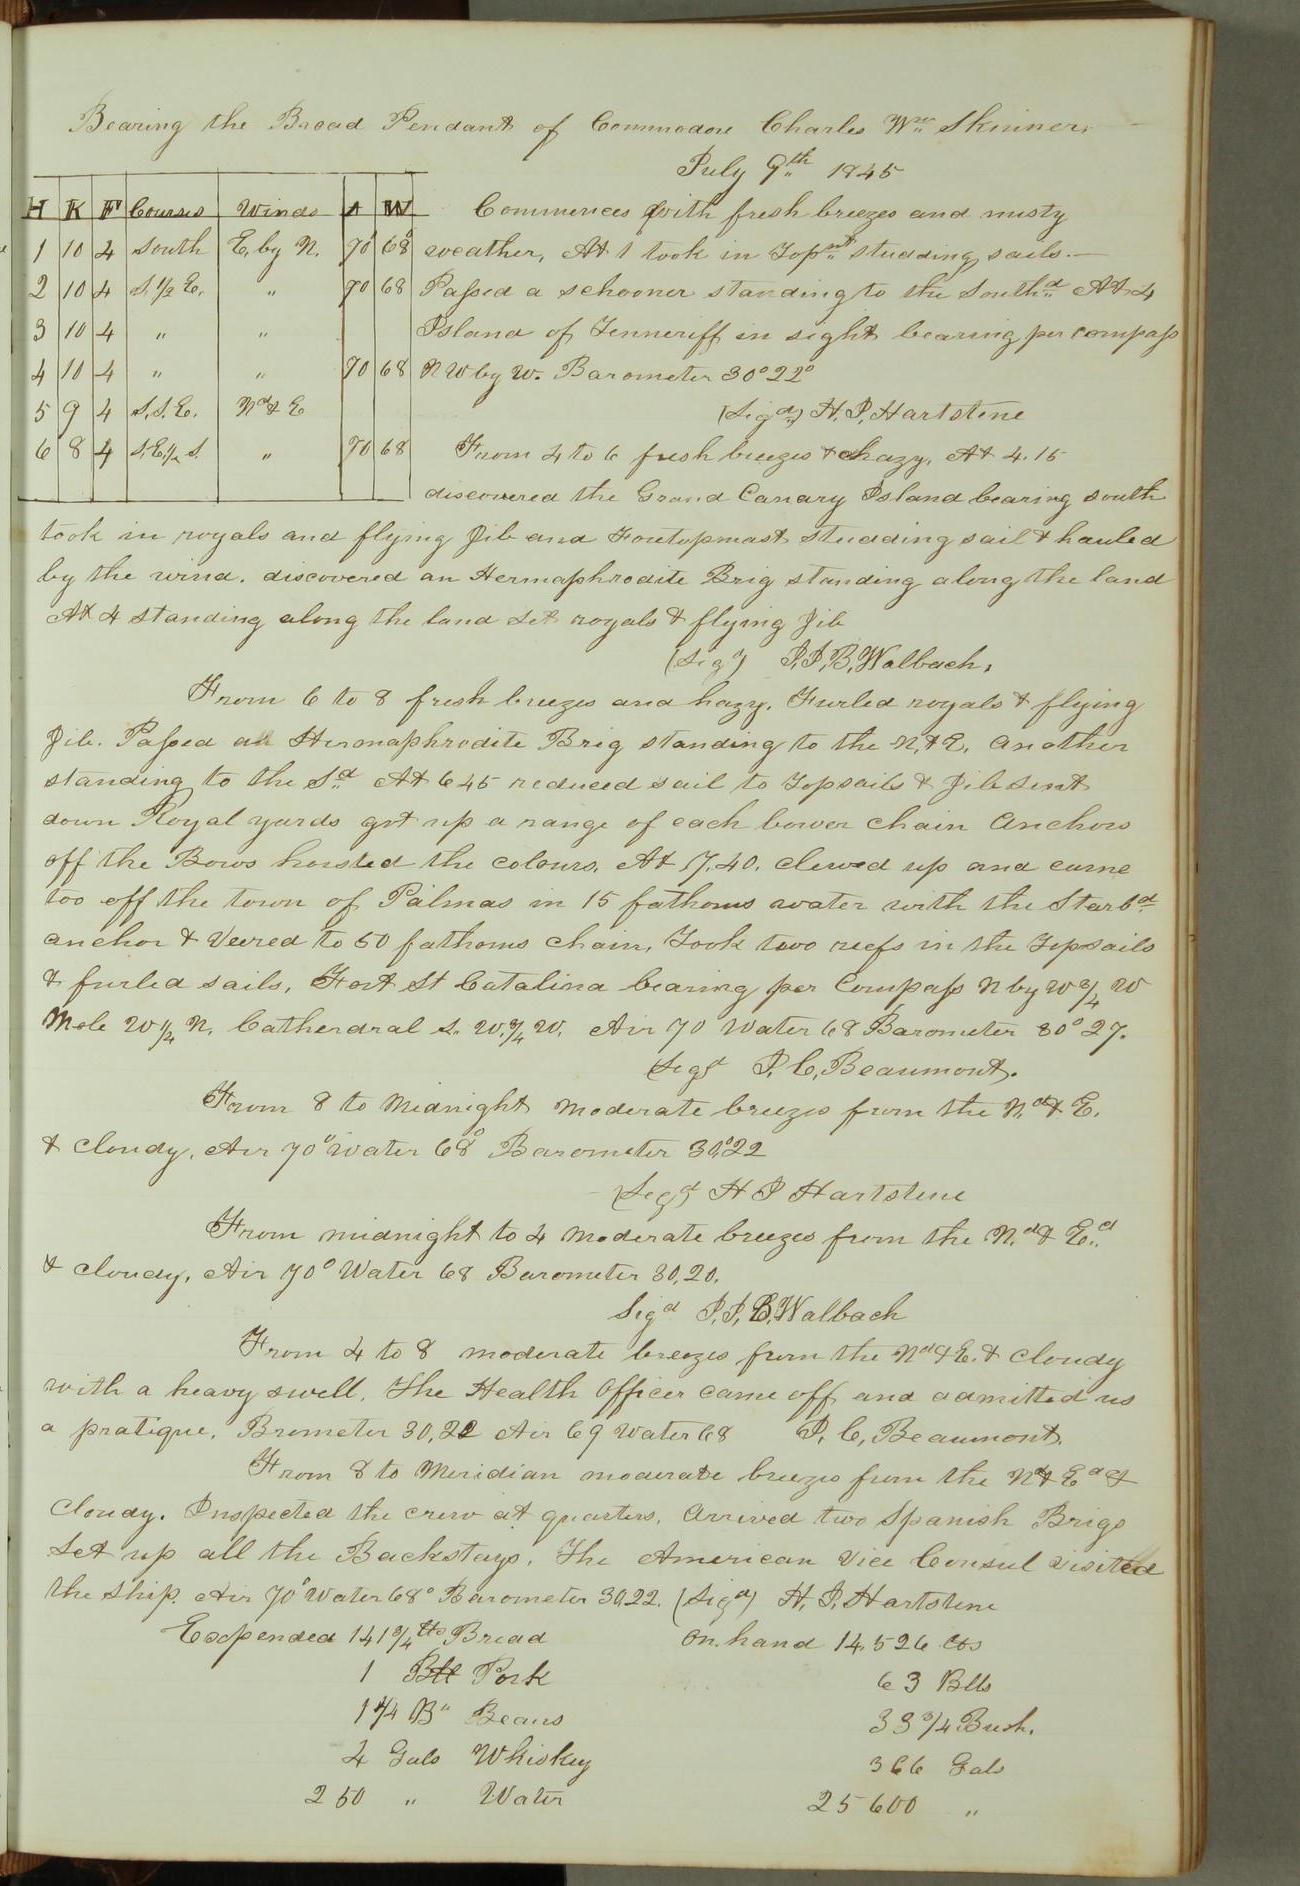 Bearing the Broad Pendant of Commodore Charles Wm Skinner.
July 9th 1845
H K F Courses Winds A W
Commences with fresh breezes and misty
1 10 4 South E. by N. 70° 68° weather, At 1 took in Topmt studding sails.—
2 10 4 S. 1/2 E. " 70 68 Passed a schooner standing to the Southd At 4
3 10 4 " " Island of Tenneriff in sight bearing per compass
4 10 4 " " 70 68 N W by W. Barometer 30° 22°
5 9 4 S. S. E. Nd & E (Sigd) H. J. Hartstene
6 8 4 S. E. 1/2 S. " 70 68 From 4 to 6 fresh breezes & hazy. At 4.15
discovered the Grand Canary Island bearing south
took in royals and flying Jib and Foretopmast studding sail & hauled
by the wind. discovered an Hermaphrodite Brig standing along the land
At 4 standing along the land set royals & flying Jib
(Sigd) J. J. B. Walbach.
From 6 to 8 fresh breezes and hazy. Furled royals & flying
Jib. Passed an Hermaphrodite Brig standing to the N. & E. another
standing to the Sd At 6 45 reduced sail to Topsails & Jib sent
down Royal yards got up a range of each bower chain anchors
off the Bows hoisted the colours. At 7.40. clewed up and came
too off the town of Palmas in 15 fathoms water with the Starbd
anchor & Veered to 50 fathoms chain. Took two reefs in the Topsails
& furled sails. Fort St Catalina bearing per Compass N by W 3/4 W
Mole W 1/4 N. Catherdral S. W. 3/4 W. Air 70 Water 68 Barometer 30° 27.
(Sigd J. C. Beaumont.
From 8 to Midnight moderate breezes from the N.d & E.
& cloudy. Air 70° Water 68° Barometer 30°22
(Sigd H J Hartstene
From midnight to 4 moderate breezes from the N.d & E.d
& cloudy. Air 70° Water 68 Barometer 30.20.
Sigd J. J. B. Walbach
From 4 to 8 moderate breezes from the Nd & E. & cloudy
with a heavy swell. The Health Officer came off and admitted us
a pratique. Brometer 30,22 Air 69 Water 68 J. C. Beaumont.
From 8 to Meridian moderate breezes from the Nd & Ed &
Cloudy. Inspected the crew at quarters. Arrived two Spanish Brigs
Set up all the Backstays. The American Vice Consul visited
the Ship. Air 70° Water 68° Barometer 30.22. (Sigd) H. J. Hartstene
Expended 141 3/4 lbs Bread On hand 14,526 lbs
1 Bll Pork 63 Blls
1 1/4 B" Beans 33 3/4 Bush.
4 Gals Whiskey 366 Gals
250 " Water 25 600 "